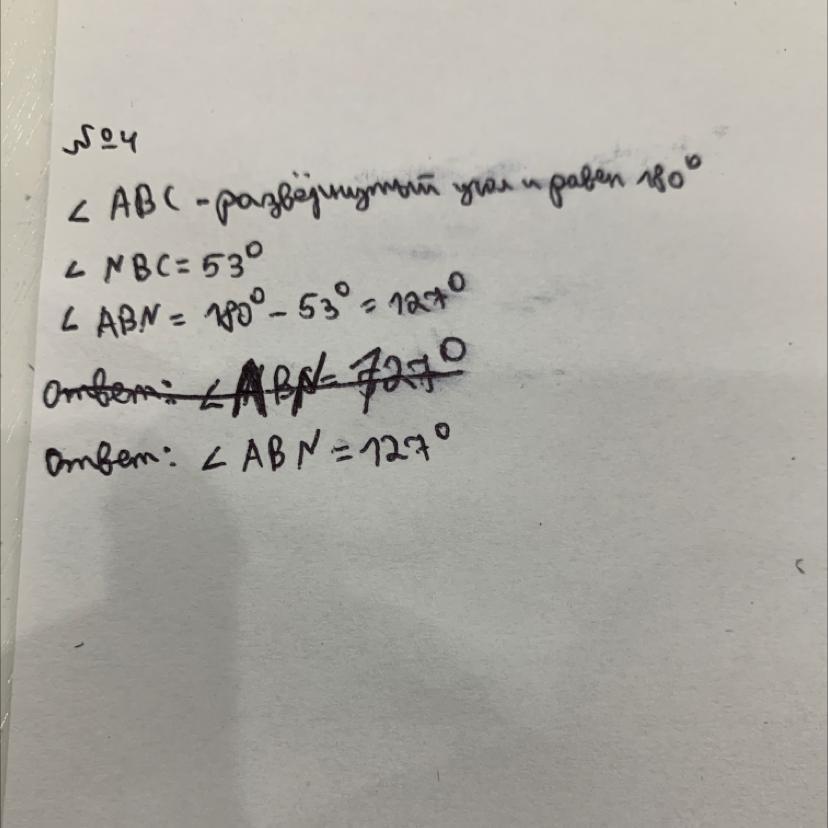 №4
∠ ABC - развёрнутый угол и равен 180°
∠ NBC = 53°
∠ ABN = 180° - 53° = 127°
Ответ: ∠ ABN = 127°
Ответ: ∠ ABN = 127°